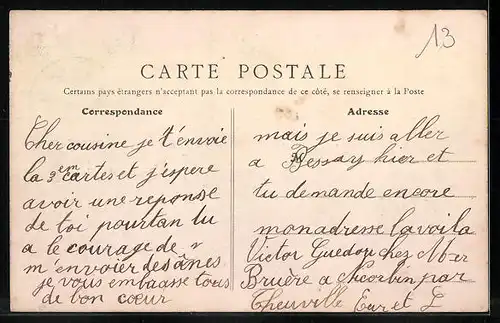 13
CARTE POSTALE
Certains pays étrangers n'acceptant pas la correspondance de ce côté, se renseigner à la Poste
Correspondance
Cher cousine je t'envoie
la 3em cartes et j'espere
avoir une reponse
de toi pourtan tu
a le courage de
m'envoier des ânes
je vous embaasse tous
de bon cœur
Adresse
mais je suis aller
a Bessay hier et
tu demande encore
mon adresse la voila
Victor Guedou chez Mer
Bruère a par
Theuville Eur et L